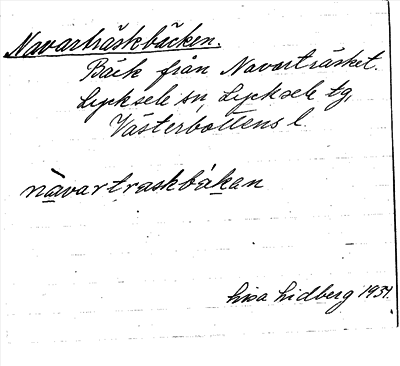 Navarträskbäcken.
Bäck från Navarträsket.
Lycksele sn, Lycksele tg,
Västerbottens l.
nàvartraskbákan
Lisa Lidberg 1931.